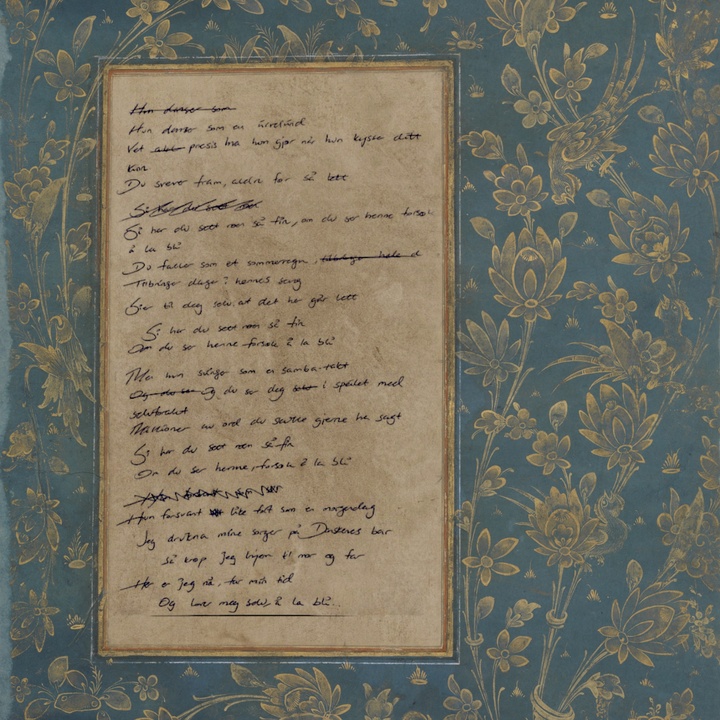 Hun danser som
Hun danser som en virvelvind
Vet alle presis hva hun gjør når hun kysser ditt
kinn
Du svever fram, aldri før så lett
Si har du sett noen så fin, om du ser henne forsøk
å la bli
Du faller som et sommerregn, tilbringe hele d
Tilbringe dager i hennes seng
Sier til deg selv at det her går lett
Si har du sett noen så fin
Om du ser henne forsøk å la bli
Men hun svinger som en samba-takt
Og du ser Og du ser deg selv i speilet med
selvforakt
Millioner av ord du skulle gjerne ha sagt
Si har du sett noen så fin
Om du ser henne, forsøk å la bli
Hun forsvant like fort som en morgendag
Jeg drukna mine sorger på Dasenes bar
så krøp jeg hjem til mor og far
Her er jeg nå, tar min tid
Og lurer meg selv, å la bli..